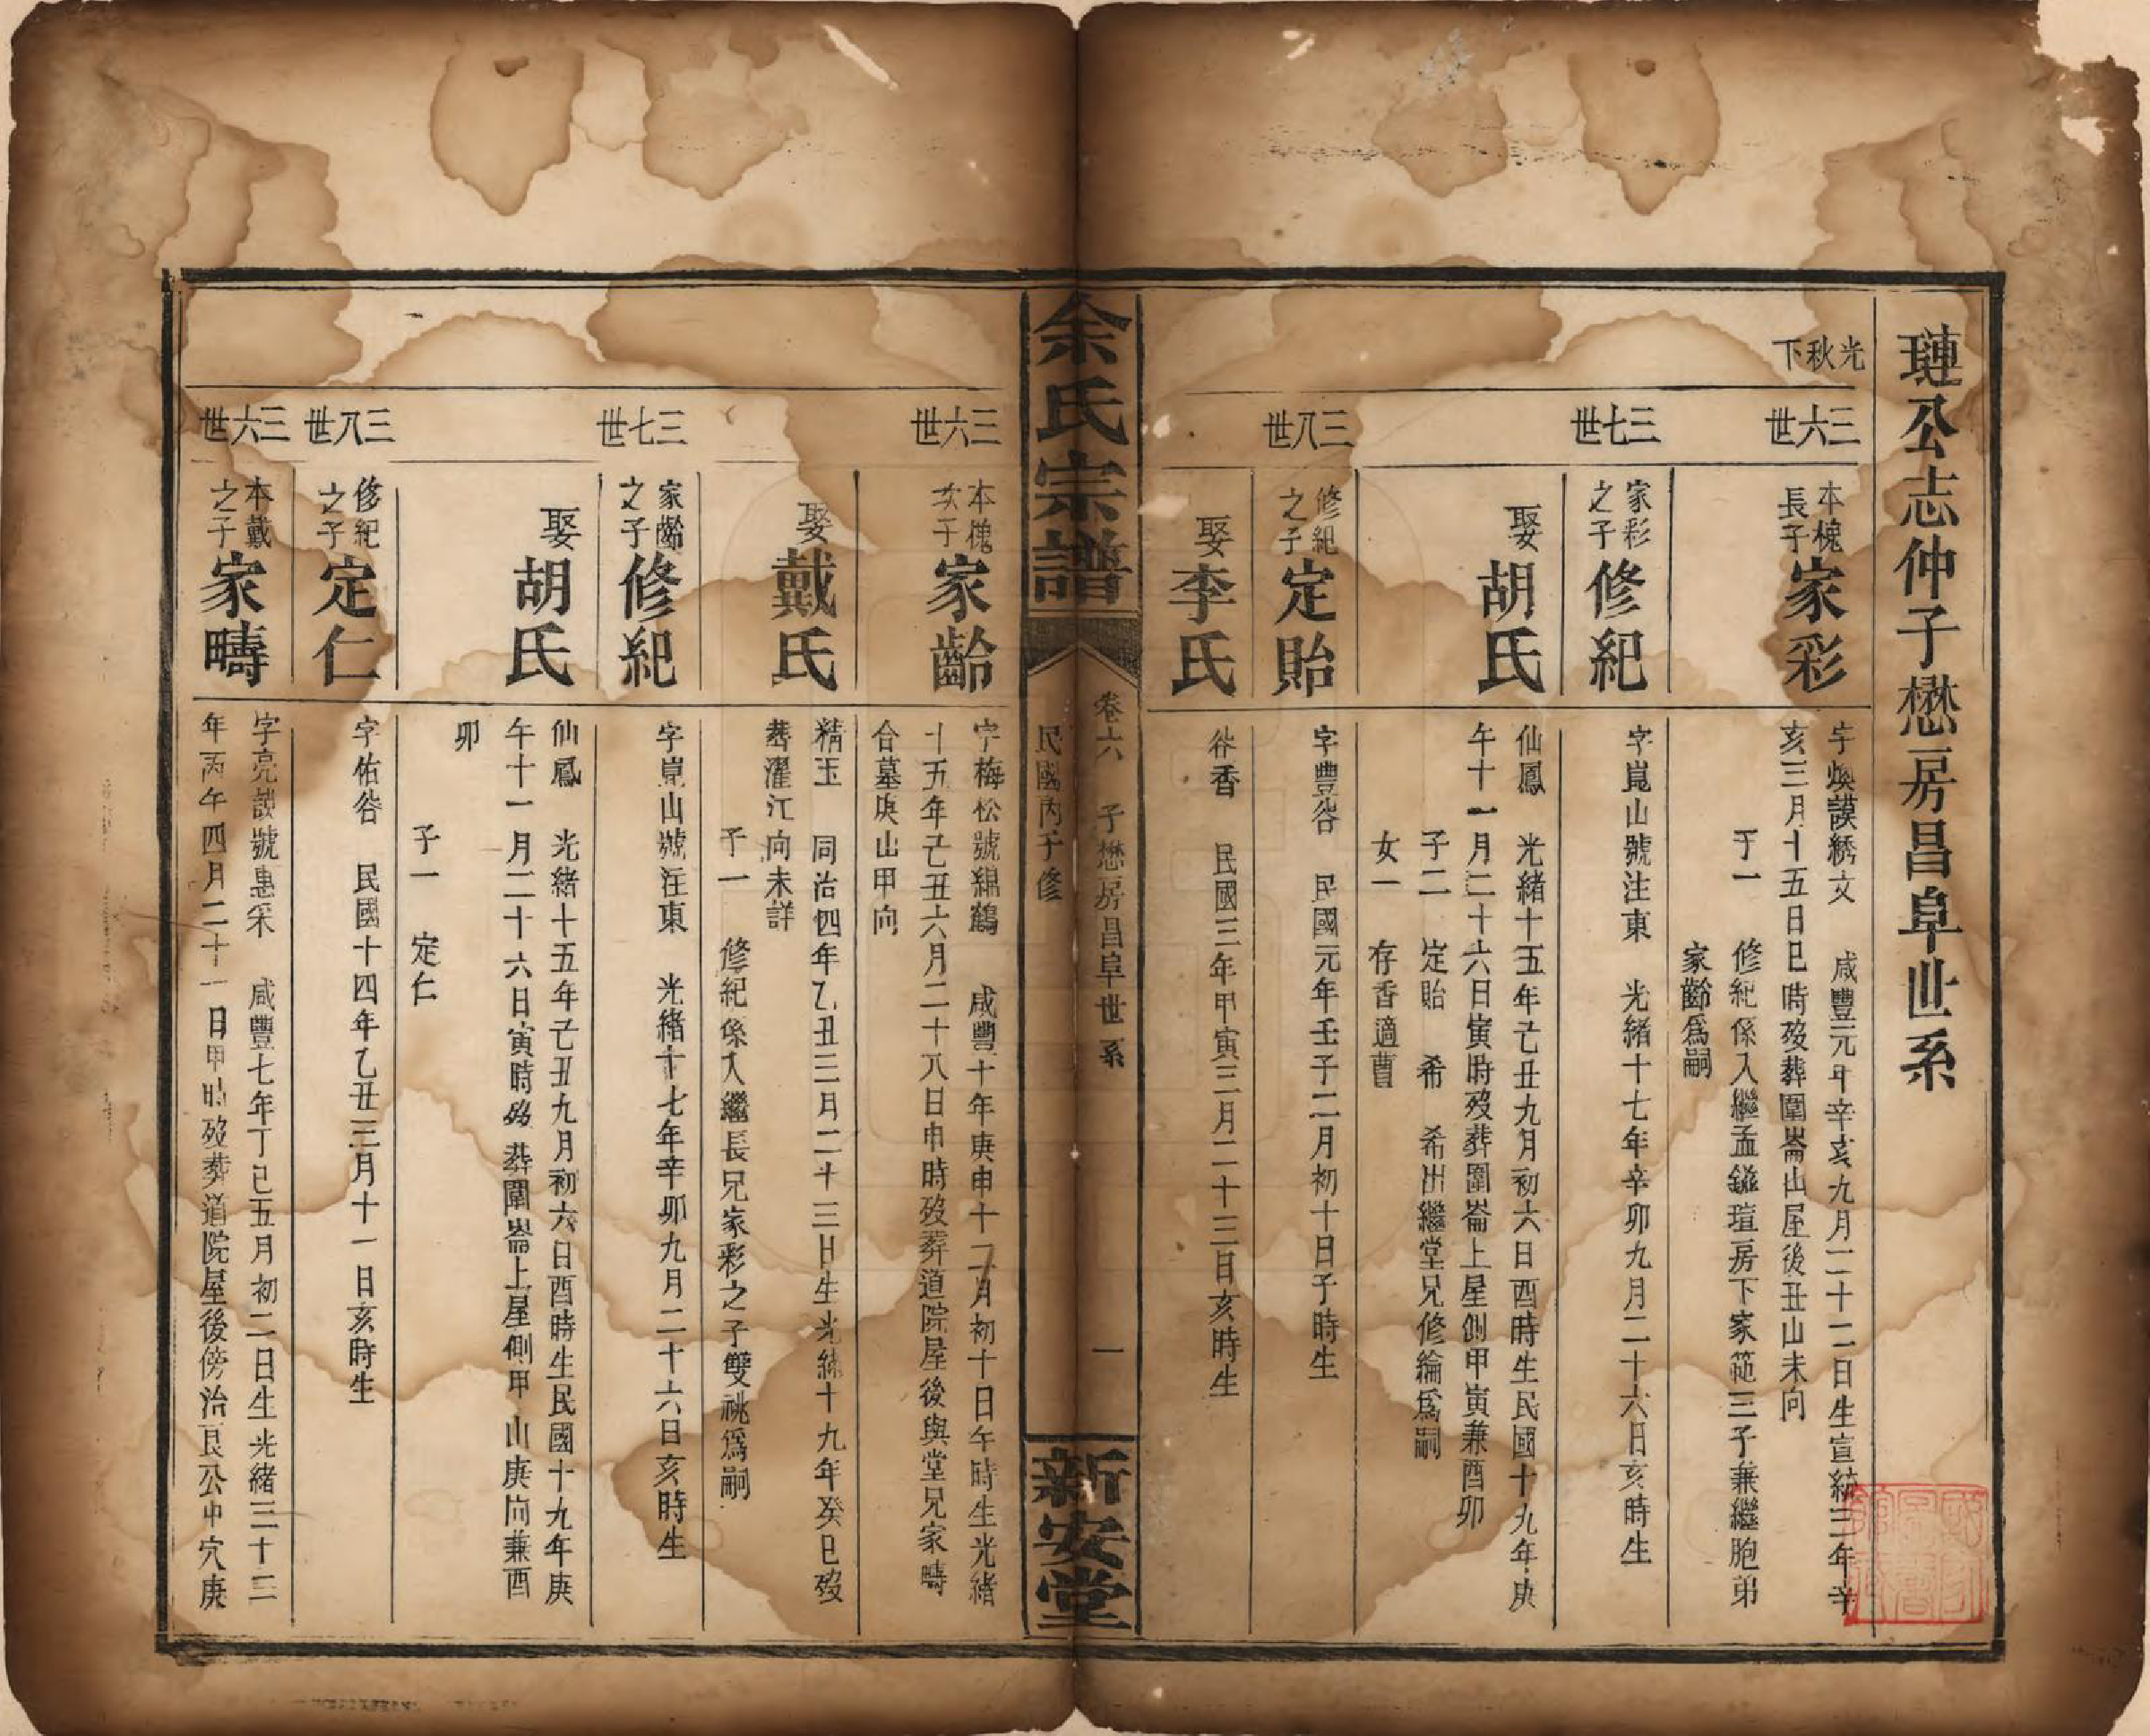 璉公志仲子懋房昌阜世系
光秋下
三六世
本槐長子家彩
字煥謨綉文 咸豐元年辛亥九月二十二日生宣統三年辛
亥三月十五日巳時歿葬圍崙山屋後丑山未向
子一 修紀係入繼孟鎰瑄房下家範三子兼繼胞弟
家齡爲嗣
三七世
家彩之子修紀
字崑山號注東 光緒十七年辛卯九月二十六日亥時生
娶胡氏
仙鳳 光緒十五年己丑九月初六日酉時生民國十九年庚
午十一月二十六日寅時歿葬圍崙上屋側甲寅兼酉卯
子二 定貽 希 希出繼堂兄修綸爲嗣
女一 存香適曹
三八世
修紀之子定貽
字豐谷 民國元年壬子二月初十日子時生
娶李氏
谷香 民國三年甲寅三月二十三日亥時生
余氏宗譜
卷六 子懋房昌阜世系 一
民國丙子修
新安堂
三六世
本槐次子家齡
字梅松號錦鶴 咸豐十年庚申十二月初十日午時生光緒
十五年己丑六月二十八日申時歿葬道院屋後與堂兄家疇
合墓庚山甲向
娶戴氏
精玉 同治四年乙丑三月二十三日生光緒十九年癸巳歿
葬濯江向未詳
子一 修紀係入繼長兄家彩之子雙祧爲嗣
三七世
家齡之子修紀
字崑山號注東 光緒十七年辛卯九月二十六日亥時生
娶胡氏
仙鳳 光緒十五年己丑九月初六日酉時生民國十九年庚
午十一月二十六日寅時歿葬圍崙上屋側甲山庚向兼酉
卯
子一 定仁
三八世
修紀之子定仁
字佑谷 民國十四年乙丑三月十一日亥時生
三六世
本戴之子家疇
字亮談號惠采 咸豐七年丁巳五月初二日生光緒三十三
年丙午四月二十一日甲時歿葬道院屋後傍治艮公中穴庚